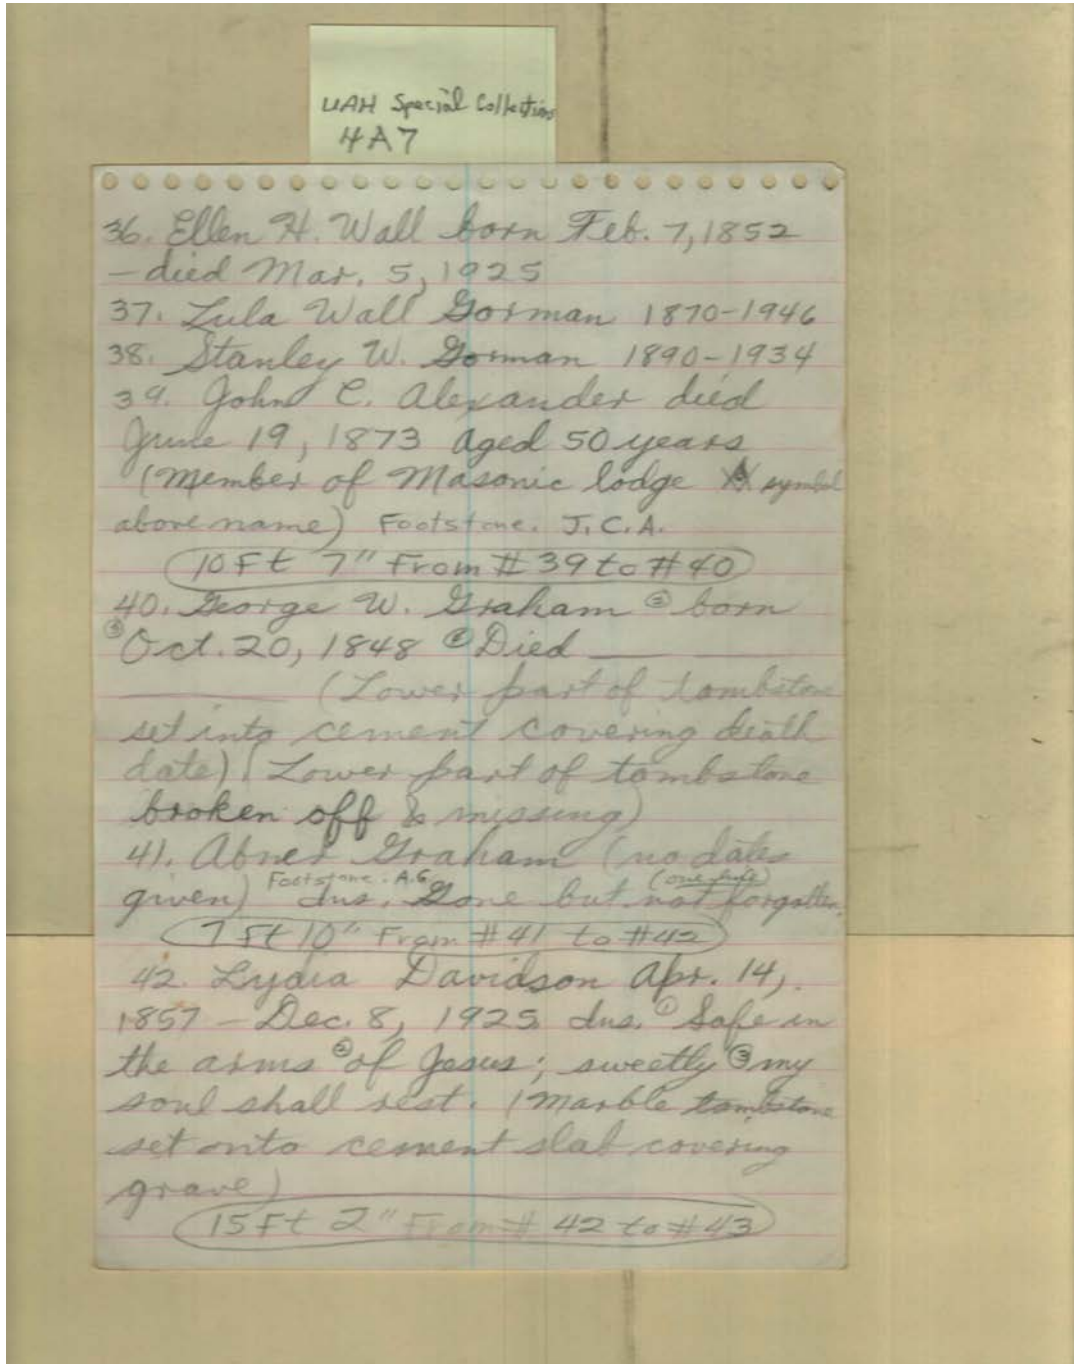 UAH Special Collections
4A7
36. Ellen H. Wall born Feb. 7, 1852
– died Mar. 5, 1925
37. Lula Wall Gorman 1870-1946
38. Stanley W. Gorman 1890-1934
39. John C. Alexander died
June 19, 1873 aged 50 years
(Member of Masonic lodge symbol
above name) Footstone. J.C.A.
10 Ft 7" From # 39 to # 40
40. George W. Graham ② born
③ Oct. 20, 1848 ④ Died ___ ___
___ (Lower part of tombstone
set into cement covering death
date) (Lower part of tombstone
broken off & missing)
41. Abner Graham (no dates
given) Footstone. A.G. Ins. Gone but not forgotten. (one line)
7 Ft 10" From # 41 to # 42
42. Lydia Davidson Apr. 14,
1857 – Dec. 8, 1925. Ins. ① Safe in
the arms ② of Jesus; sweetly ③ my
soul shall rest. (Marble tombstone
set onto cement slab covering
grave)
15 Ft 2" From # 42 to # 43